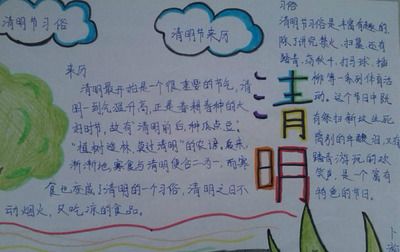 清明节习俗
清明节来历
来历
清明最开始是一个很重要的节气,清
明一到气温升高,正是春耕春种的大
好时节,故有“清明前后,种瓜点豆”。
“植树造林,莫过清明”的农谚。后来,
渐渐地,寒食与清明便合二为一,而寒
食也在成了清明的一个习俗,清明之日不
动烟火,只吃凉的食品。
清明
习俗
清明节习俗是丰富有趣的,
除了讲究禁火、扫墓,还有
踏青、荡秋千、打马球、插
柳等一系列体育活
动。这个节日中既
有祭扫新坟生死
离别的辛酸泪,又有
踏青游玩的欢
笑声,是一个富有
特色的节日。